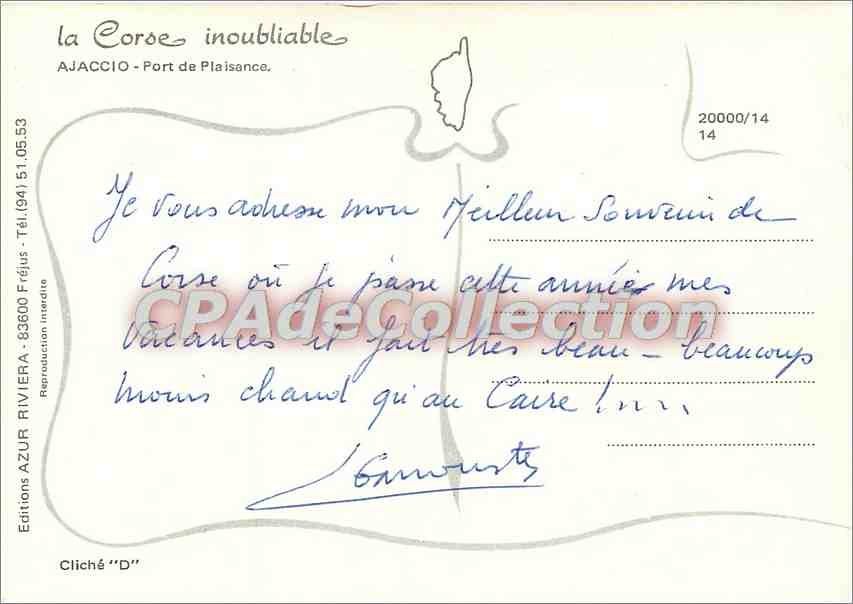 la Corse inoubliable
AJACCIO - Port de Plaisance.
20000/14
14
Je vous adresse mon Meilleur Souvenir de
Corse où je passe cette année mes
CPAdeCollection
vacances il fait très beau - beaucoup
moins chaud qu'au Caire !....
Editions AZUR RIVIERA - 83600 Fréjus - Tél.(94) 51.05.53
Reproduction interdite
Cliché "D"